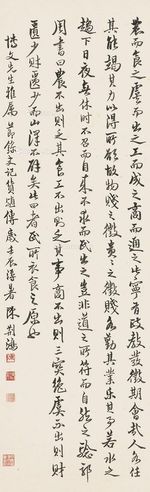 農而食之虞而出之工而成之商而通之此寧有政教發徵期會哉人各任
其能竭其力以得所欲故物賤之徵貴貴之徵賤各勸其業樂其事若水之
趨下日夜無休時不召而自來不求而民出之豈非道之所符而自然之驗邪
周書曰農不出則乏其食工不出則乏其事商不出則三寶絕虞不出則財
匱少財匱少而山澤不辟矣此四者民所衣食之原也
博文先生雅屬節錄史記貨殖傳歲 陳荊鴻